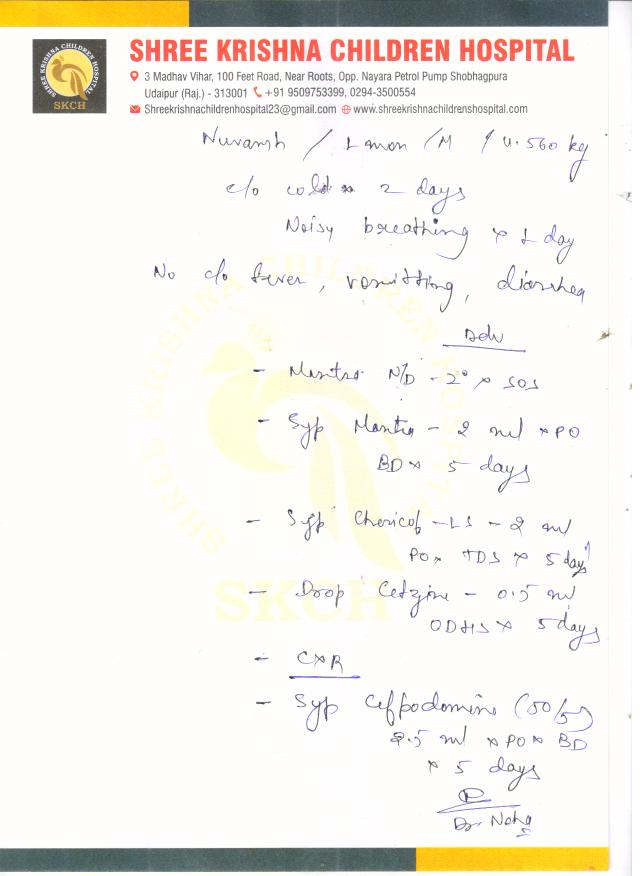 SHREE KRISHNA CHILDREN HOSPITAL
SHREE KRISHNA CHILDREN HOSPITAL
SKCH
3 Madhav Vihar, 100 Feet Road, Near Roots, Opp. Nayara Petrol Pump Shobhagpura
Udaipur (Raj.) - 313001 +91 9509753399, 0294-3500554
Shreekrishnachildrenhospital23@gmail.com www.shreekrishnachildrenshospital.com
/ 1 mon /M / 4.560 kg
c/o cold x 2 days
Noisy breathing x 1 day
No c/o fever, vomitting, diarrhea
SHREE KRISHNA CHILDREN HOSPITAL
SKCH
Adv
- N/D - 2° x SOS
- Syp - 2 ml x PO
BD x 5 days
- Syp Chericof - LS - 2 ml
PO x TDS x 5 days
- Drop Cetzine - 0.5 ml
ODHS x 5 days
- CXR
- Syp Cefpodomine (50/5)
2.5 ml x PO x BD
x 5 days
Dr. Neha